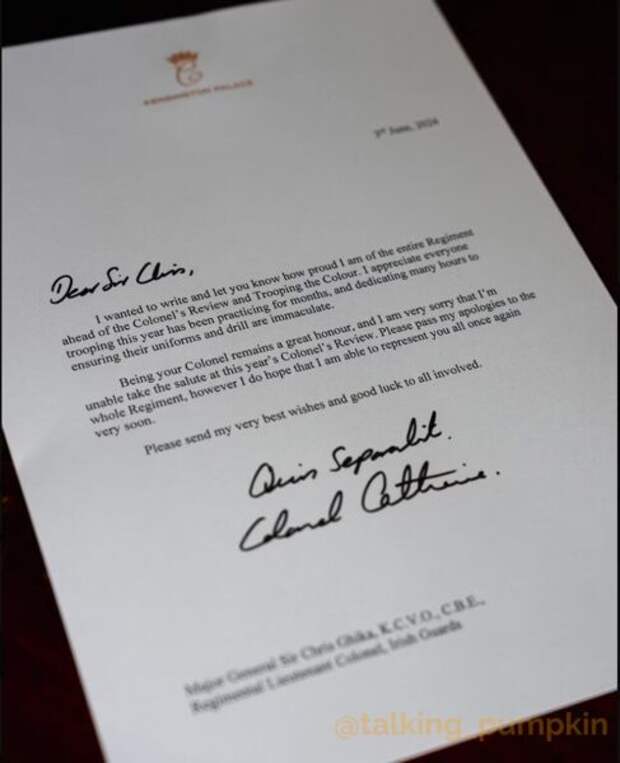 KENSINGTON PALACE
3rd June, 2024
Dear Sir Chris,
I wanted to write and let you know how proud I am of the entire Regiment
ahead of the Colonel's Review and Trooping the Colour. I appreciate everyone
trooping this year has been practicing for months, and dedicating many hours to
ensuring their uniforms and drill are immaculate.
Being your Colonel remains a great honour, and I am very sorry that I'm
unable take the salute at this year's Colonel's Review. Please pass my apologies to the
whole Regiment, however I do hope that I am able to represent you all once again
very soon.
Please send my very best wishes and good luck to all involved.
Quis Separabit.
Colonel Catherine.
Major General Sir Chris Ghika, K.C.V.O., C.B.E.,
Regimental Lieutenant Colonel, Irish Guards
@talking_pumpkin